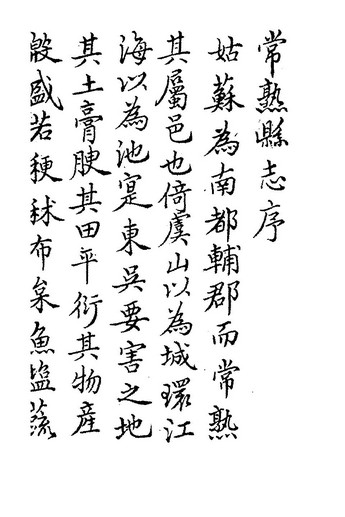 常熟縣志序
姑蘇為南都輔郡而常熟
其屬邑也倚虞山以為城環江
海以為池寔東吳要害之地
其土膏腴其田平衍其物產
殷盛若稉秫布枲魚塩蔬